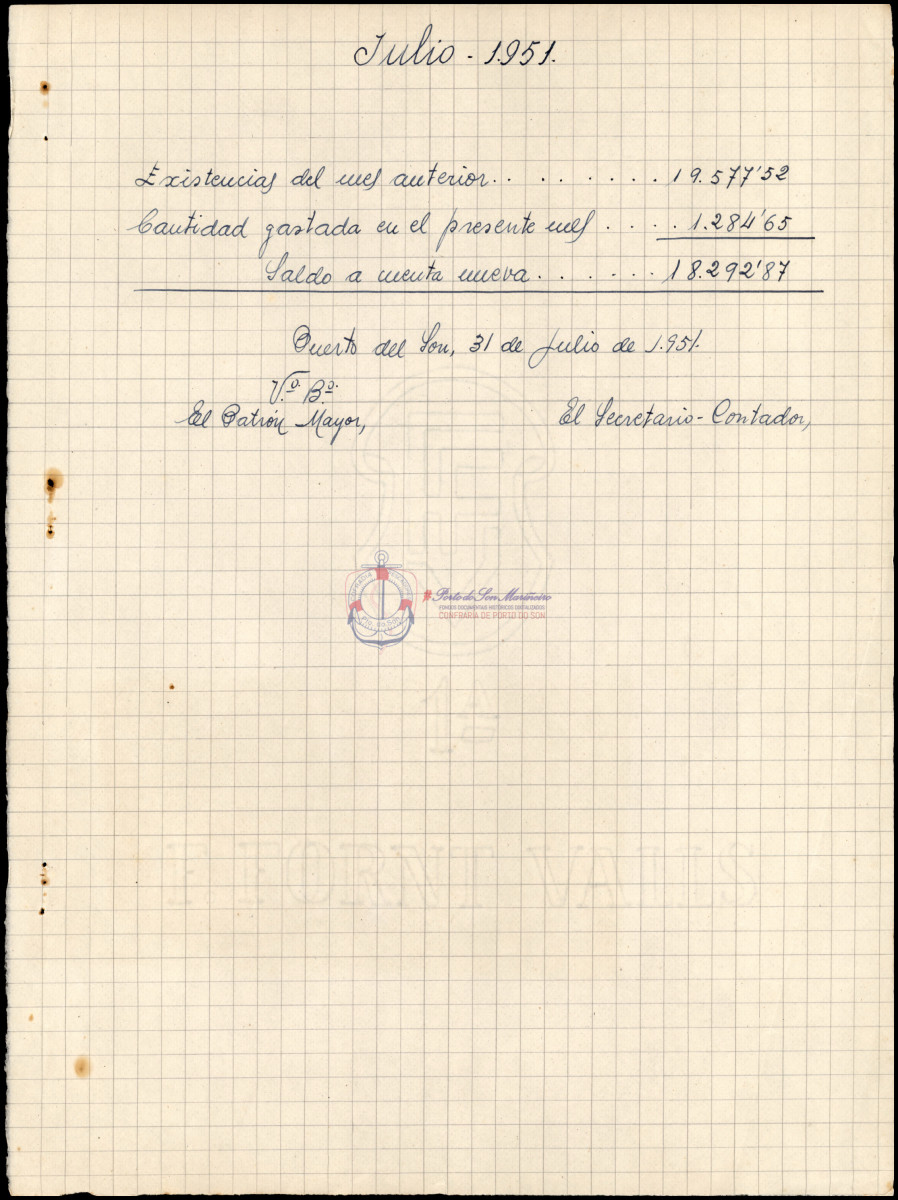 Julio - 1.951.
Existencias del mes anterior. . . . . . . . . . 19.577'52
Cantidad gastada en el presente mes . . . . 1.284'65
Saldo a cuenta nueva . . . . . . . 18.292'87
Puerto del Son, 31 de Julio de 1.951.
Vº. Bº.
El Patrón Mayor,
El Secretario-Contador,
#Porto do Son Mariñeiro
FONDOS DOCUMENTAIS HISTÓRICOS DIXITALIZADOS
CONFRARÍA DE PORTO DO SON